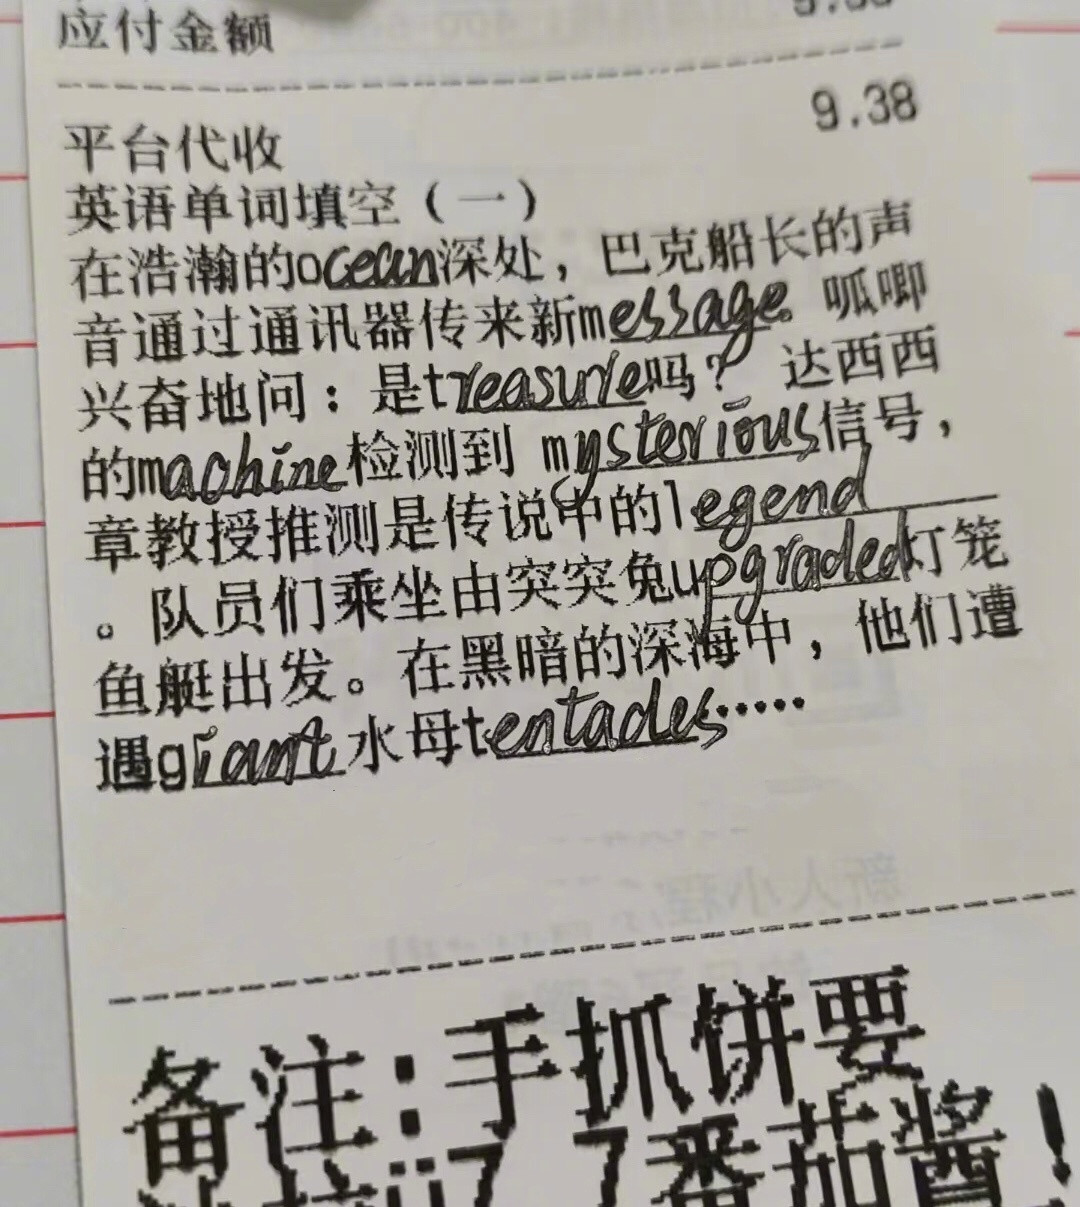 应付金额
平台代收 9.38
英语单词填空（一）
在浩瀚的ocean深处，巴克船长的声
音通过通讯器传来新message。呱唧
兴奋地问：是treasure吗？ 达西西
的machine检测到 mysterious信号，
章教授推测是传说中的legend
。队员们乘坐由突突兔upgraded灯笼
鱼艇出发。在黑暗的深海中，他们遭
遇giant水母tentacles·····
备注：手抓饼要
番茄酱！